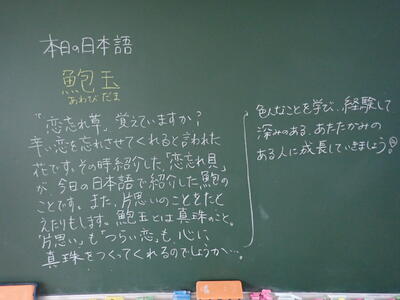 本日の日本語
鮑玉
あわびだま
"恋忘れ草"覚えていますか?
辛い恋を忘れさせてくれると言われた
花です。その時紹介した"恋忘れ貝"
が、今日の日本語で紹介した鮑の
ことです。また、片思いのことをたと
えたりもします。鮑玉とは真珠のこと。
"片思い"も"つらい恋"も、心に
真珠をつくってくれるのでしょうか…。
色んなことを学び、経験して
深みのある、あたたかみの
ある人に成長していきましょう。